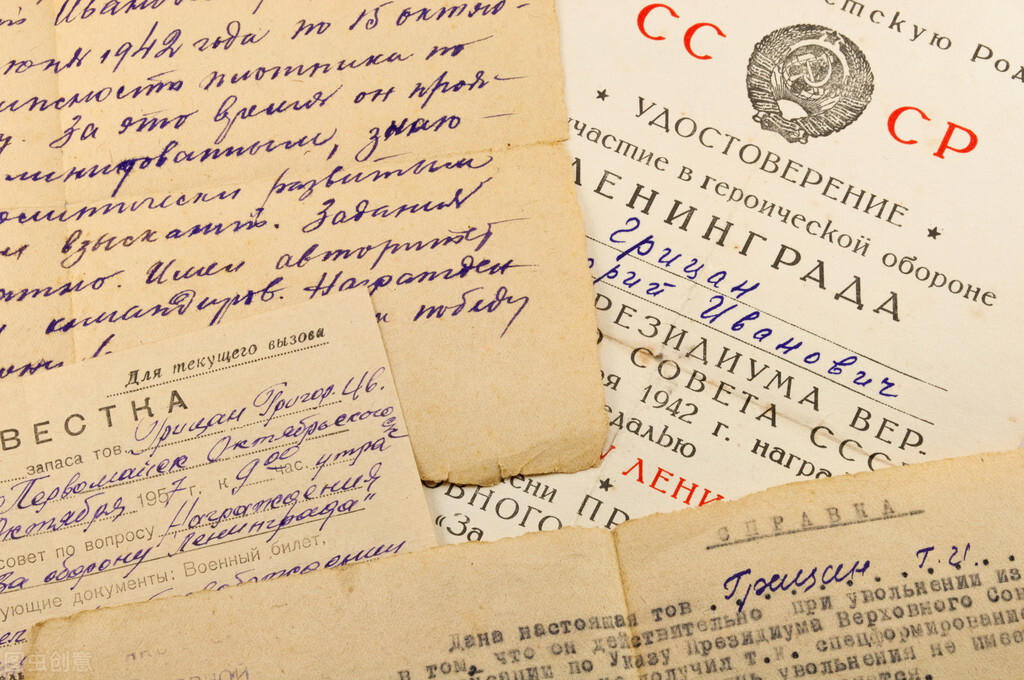 Иванов
июня 1942 года по 15 октяю-
плотника по
За это время он прояв-
знаю-
политически развитым
взысканий. Задания
Имел авторитет
командиров. Награжден
победу
Для текущего вызова
ВЕСТКА
запаса тов. Грицан Григор. Ив.
Первомайск Октябрьского
Октября 1957 г. к 9 00 час. утра
совет по вопросу Награждения
За оборону Ленинграда"
ующие документы: Военный билет,
етскую Род
СС СР
★ УДОСТОВЕРЕНИЕ ★
участие в героической обороне
ЛЕНИНГРАДА
Грицан
орий Иванович
РЕЗИДИУМА ВЕР-
О СОВЕТА СССР
ря 1942 г. награ
едалью
У ЛЕНИ
★
ени ПР
ОВНОГО
"За
СПРАВКА
Грицин Г. И.
Дана настоящая тов
в том, что он действительно при увольнении из
сации по Указу Президиума Верховного Сов
не получил т.к. спецформирование
увольнения не имее
ется.
图虫创意